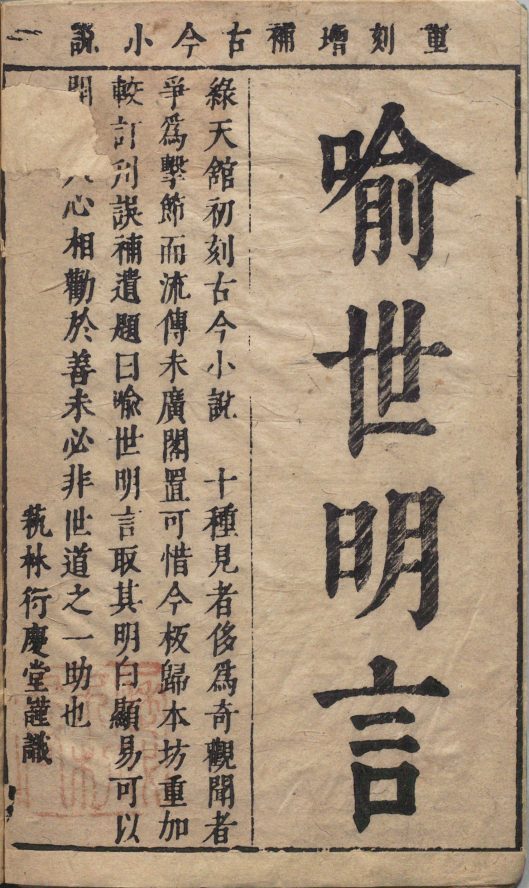 重刻增補古今小說
喻世明言
綠天館初刻古今小說 十種見者侈為奇觀聞者
爭為擊節而流傳未廣閣置可惜今板歸本坊重加
較訂刊誤補遺題曰喻世明言取其明白顯易可以
開 人心相勸於善未必非世道之一助也
蓺林衍慶堂謹識